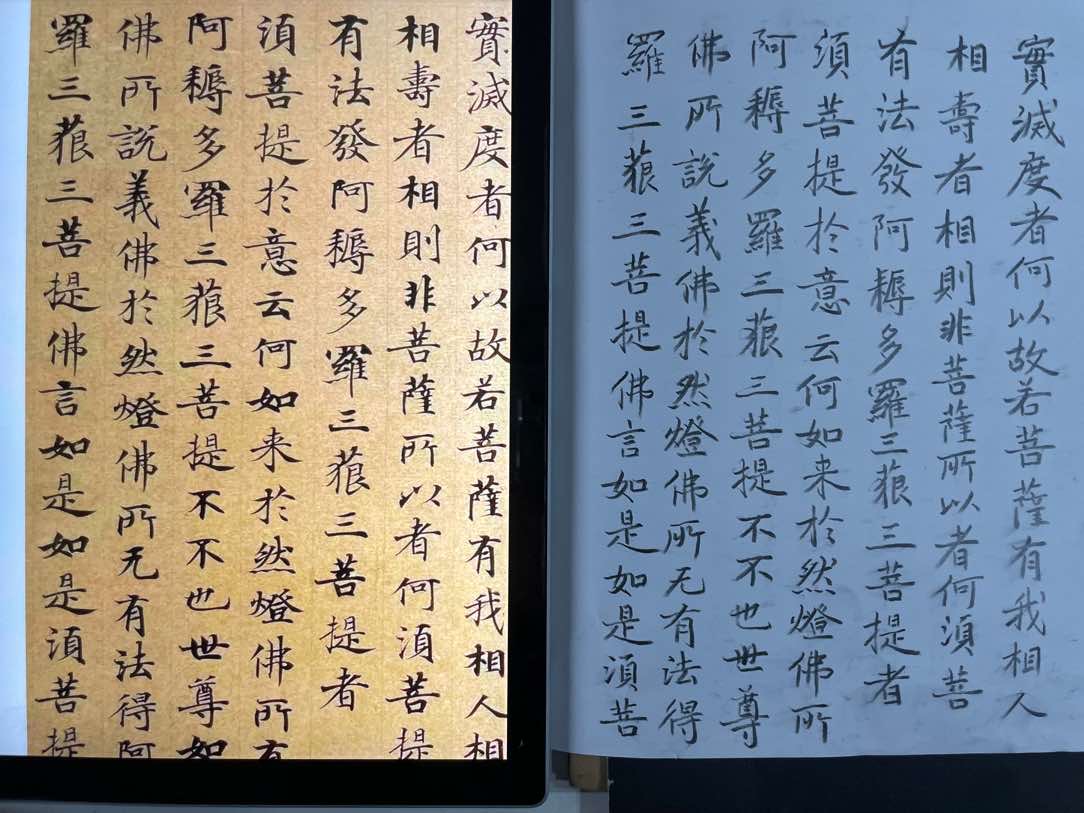 實滅度者何以故若菩薩有我相人相
相壽者相則非菩薩所以者何須菩提
有法發阿耨多羅三藐三菩提者
須菩提於意云何如来於然燈佛所有
阿耨多羅三藐三菩提不不也世尊如
佛所說義佛於然燈佛所无有法得阿
羅三藐三菩提佛言如是如是須菩提
實滅度者何以故若菩薩有我相人
相壽者相則非菩薩所以者何須菩
有法發阿耨多羅三藐三菩提者
須菩提於意云何如来於然燈佛所
阿耨多羅三藐三菩提不不也世尊
佛所說義佛於然燈佛所无有法得
羅三藐三菩提佛言如是如是須菩